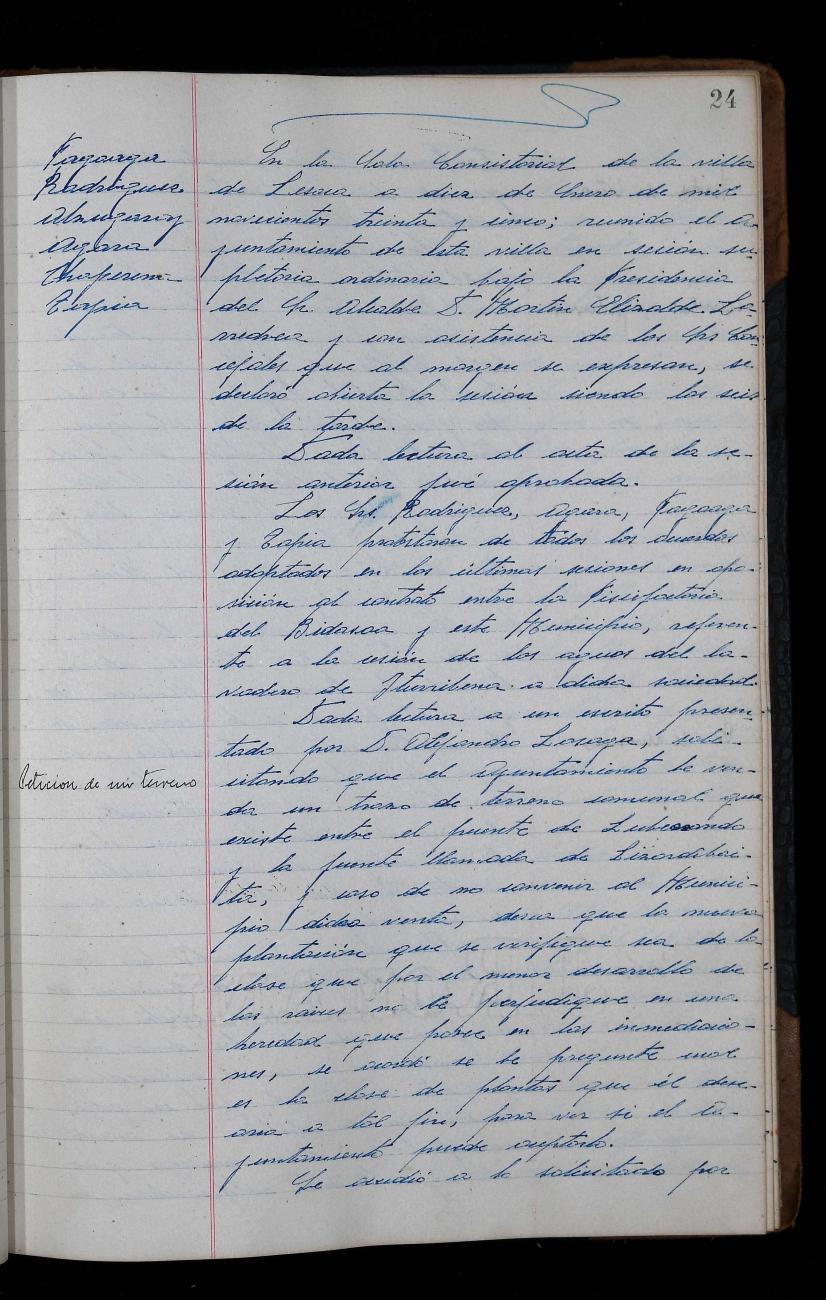 24
Fagoaga
Rodriguez
Alzugaray
Agara
Tapia
En la Sala Consistorial de la villa
de Lesaca a diez de Enero de mil
novecientos treinta y cinco; reunido el A-
yuntamiento de esta villa en sesión su-
pletoria ordinaria bajo la Presidencia
del Sr. Alcalde D. Martín Elizalde La-
rredrea y con asistencia de los Srs Con-
cejales que al margen se expresan, se
declaró abierta la sesión siendo las seis
de la tarde.
Dada lectura al acta de la se-
sión anterior fué aprobada.
Los Srs. Rodriguez, Agara, Fagoaga
y Tapia protestaron de todos los acuerdos
adoptados en las últimas sesiones en opo-
sición al contrato entre la Piscifactoria
del Bidasoa y este Municipio, referen-
te a la cesión de las aguas del la-
vadero de Iturribena a dicha sociedad.
Dada lectura a un escrito presen-
tado por D. Alejandro Lasaga, soli-
Peticion de un terreno
citando que el Ayuntamiento le ven-
da un trozo de terreno comunal que
existe entre el puente de
y la fuente llamada de Lizardibai-
ta, y caso de no convenir al Munici-
pio dicha venta, desea que la nueva
plantación que se verifique sea de la
clase que por el menor desarrollo de
las raices no le perjudique en una
heredad que posee en las inmediacio-
nes, se acordó se le pregunte cual
es la clase de plantas que él dese-
aria a tal fin, para ver si el A-
yuntamiento puede aceptarlo.
Se accedió a lo solicitado por